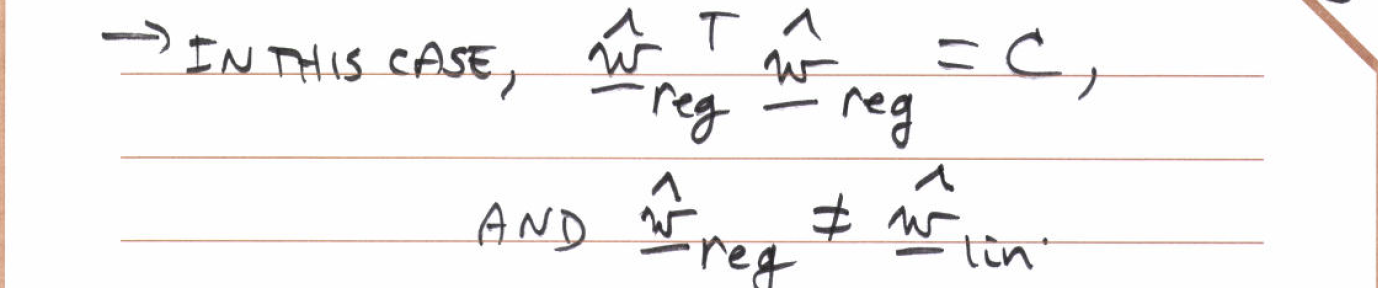 → IN THIS CASE, $\underline{\hat{w}}_{reg}^{T} \underline{\hat{w}}_{reg} = C,$
AND $\underline{\hat{w}}_{reg} \neq \underline{\hat{w}}_{lin}.$